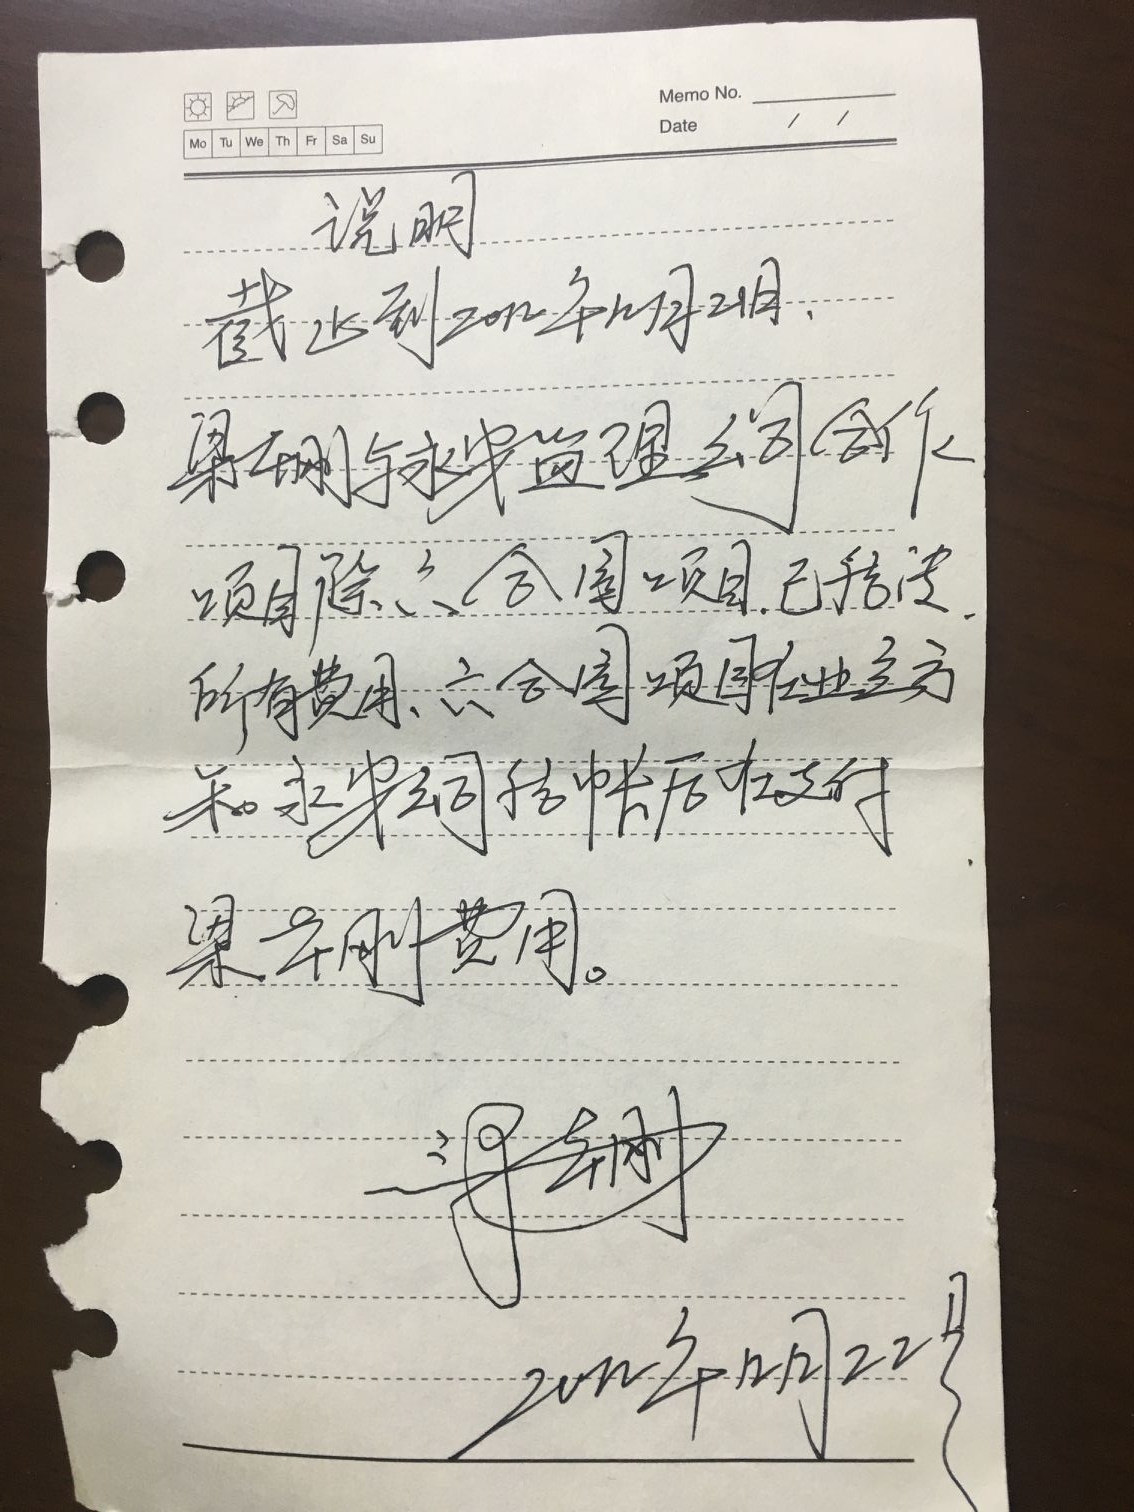 Memo No.
Date / /
Mo Tu We Th Fr Sa Su
说明
截止到2012年12月21日、
梁立刚与永安监理公司合作
项目除六合园项目.已结清.
所有费用、六合园项目在业主方
和永安公司结帐后在支付
梁立刚费用。
梁立刚
2012年12月22号